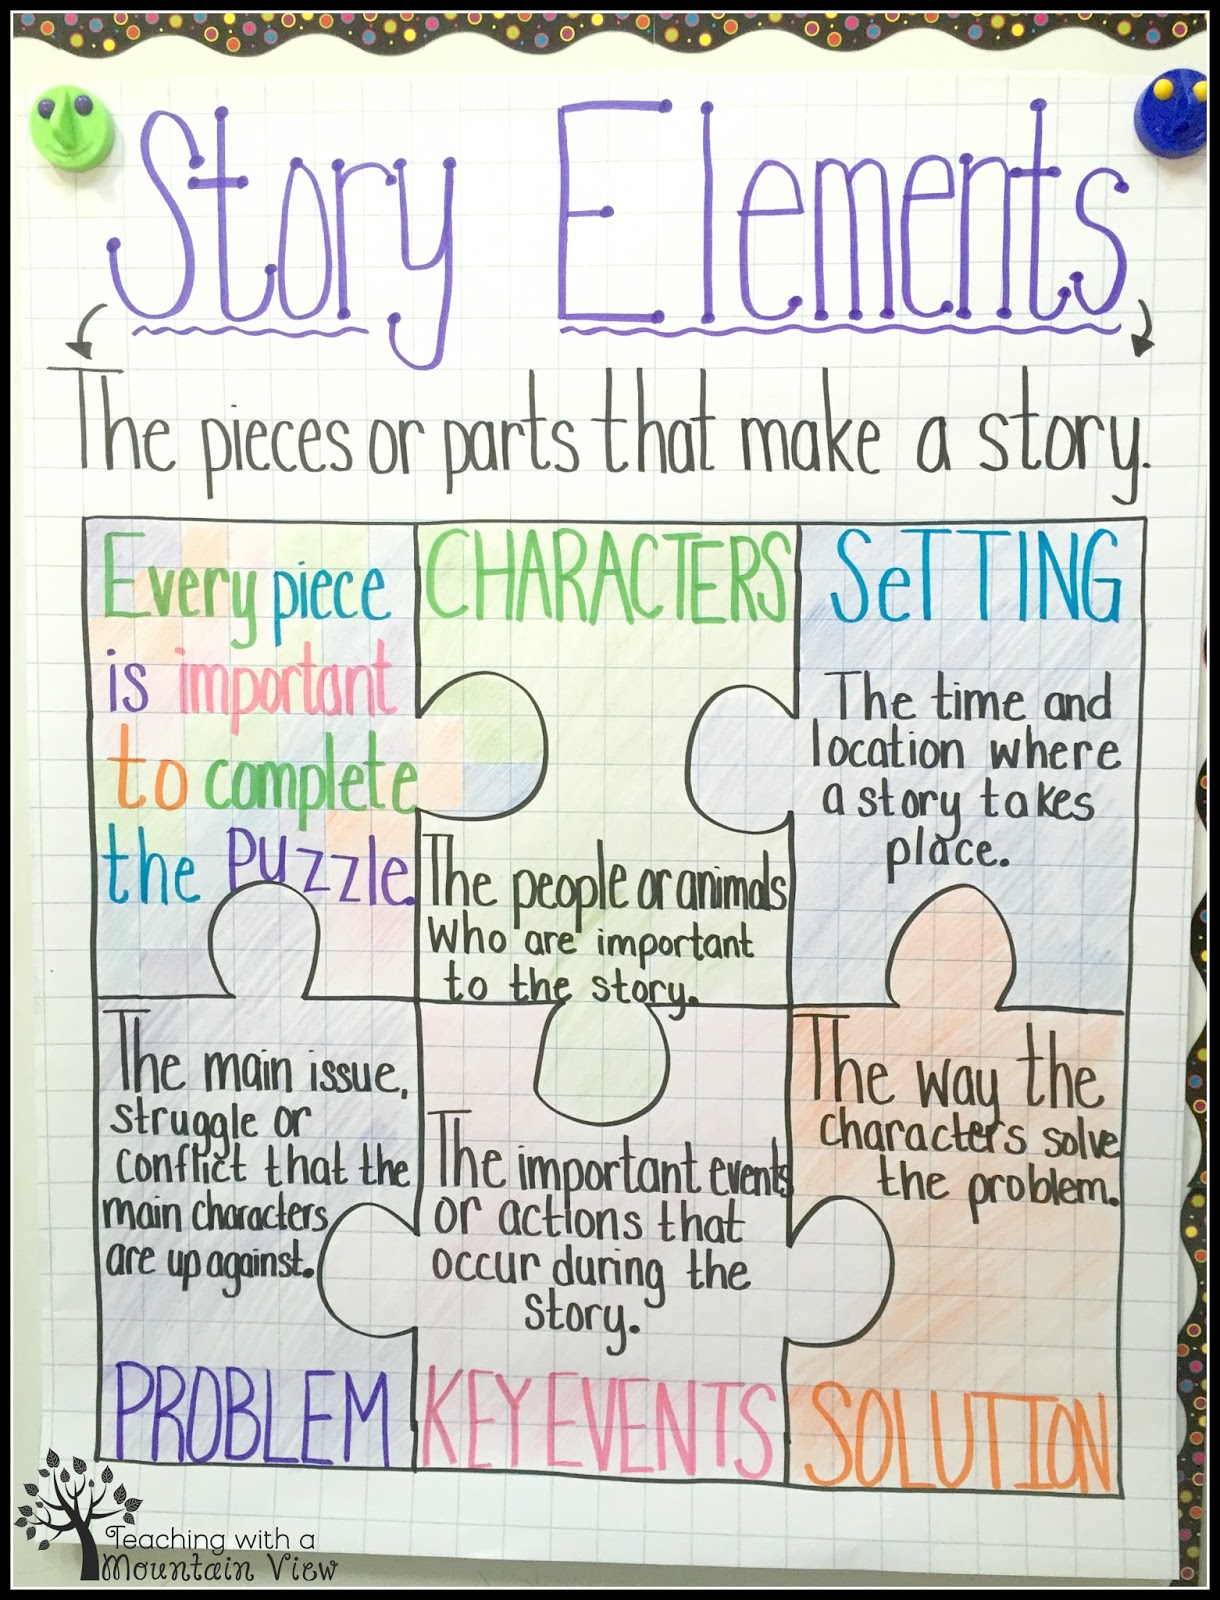 Story Elements
The pieces or parts that make a story.
Every piece
is important
to complete
the Puzzle.
CHARACTERS
The people or animals
who are important
to the story.
SeTTING
The time and
location where
a story takes
place.
The main issue,
struggle or
conflict that the
main characters
are up against.
PROBLEM
The important events
or actions that
occur during the
story.
KEY EVENTS
The way the
characters solve
the problem.
SOLUTION
Teaching with a
Mountain View